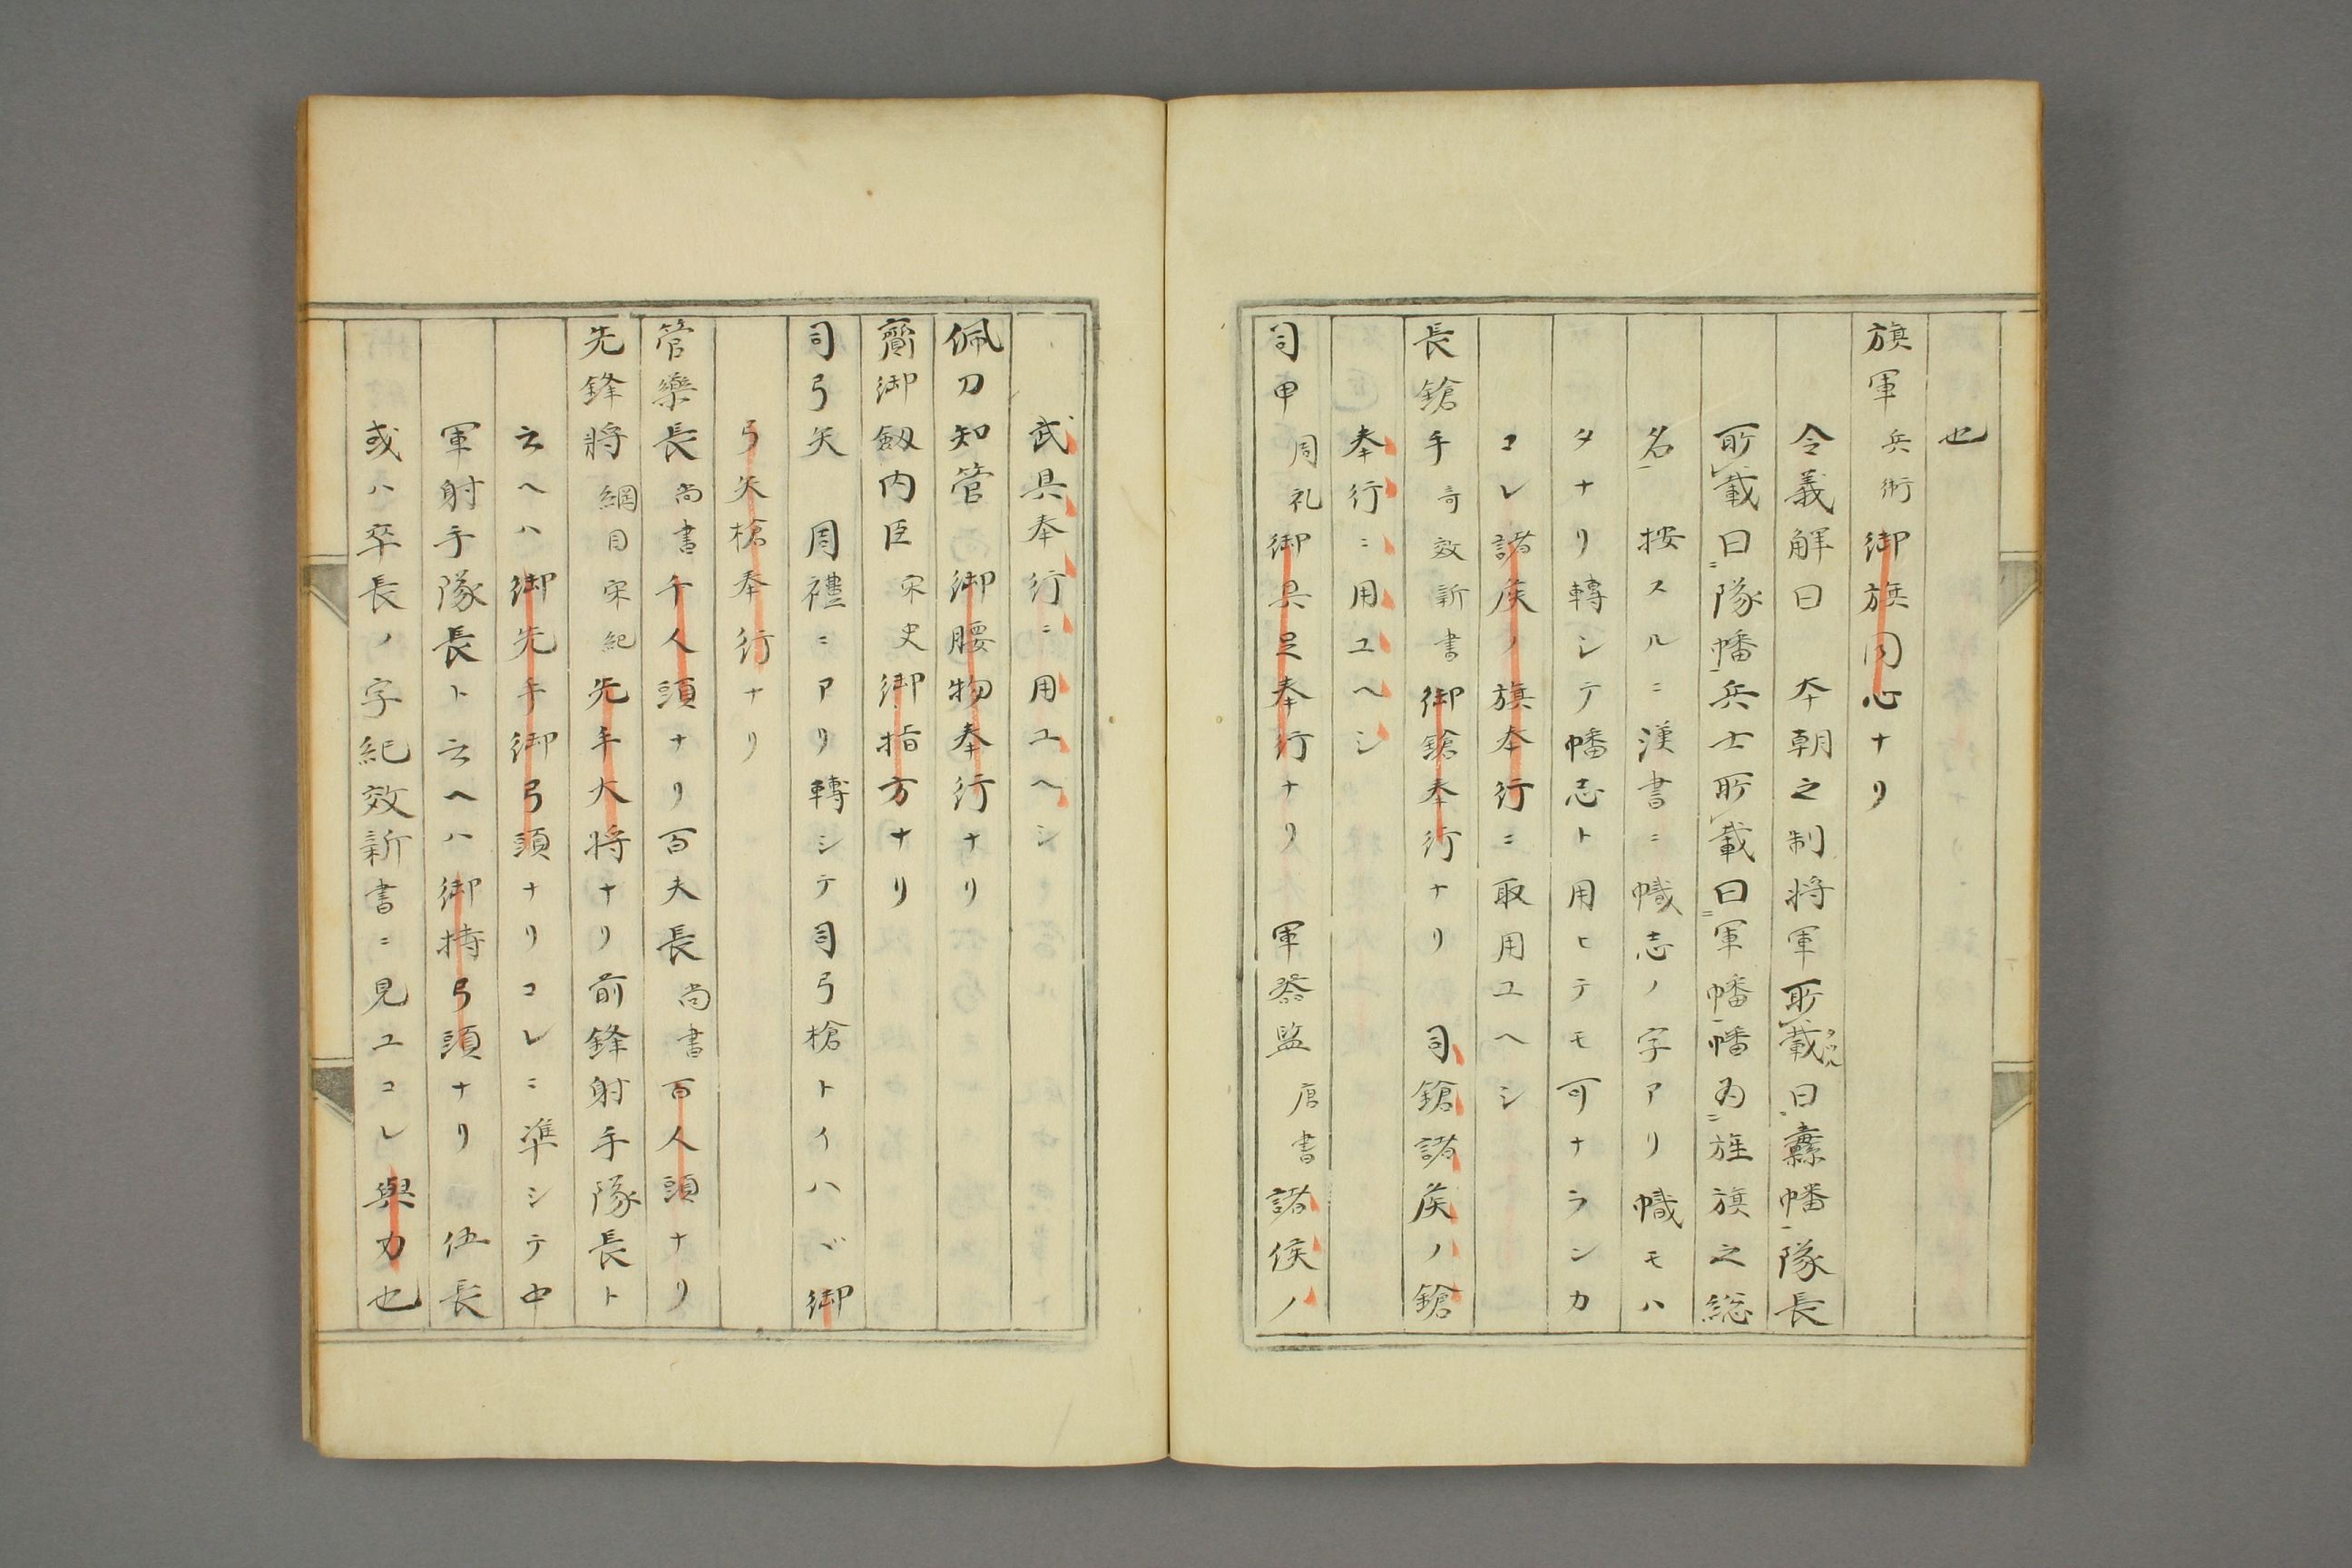 也
旗軍 兵術 御旗同心ナリ
令義解曰 本朝之制将軍所載曰纛幡隊長
所載曰隊幡兵士所載曰軍幡幡為旌旗之総
名 按スルニ漢書ニ幟志ノ字アリ幟モハ
タナリ轉シテ幡志ト用ヒテモ可ナランカ
コレ諸侯ノ旗奉行ニ取用ユヘシ
長鎗手 奇效新書 御鎗奉行ナリ 司鎗諸侯ノ鎗
奉行ニ用ユヘシ
司甲 周礼 御具足奉行ナリ 軍祭監 唐書 諸侯ノ
武具奉行ニ用ユヘシ
佩刀知管 御腰物奉行ナリ
齎御劔内臣 宋史 御指方ナリ
司弓矢 周禮ニアリ轉シテ司弓槍トイハヾ御
弓矢槍奉行ナリ
管樂長 尚書 千人頭ナリ百夫長 尚書 百人頭ナリ
先鋒将 綱目宋紀 先手大将ナリ前鋒射手隊長ト
云ヘハ御先手御弓頭ナリコレニ準シテ中
軍射手隊長ト云ヘハ御持弓頭ナリ 伍長
或ハ卒長ノ字紀效新書ニ見ユコレ與力也